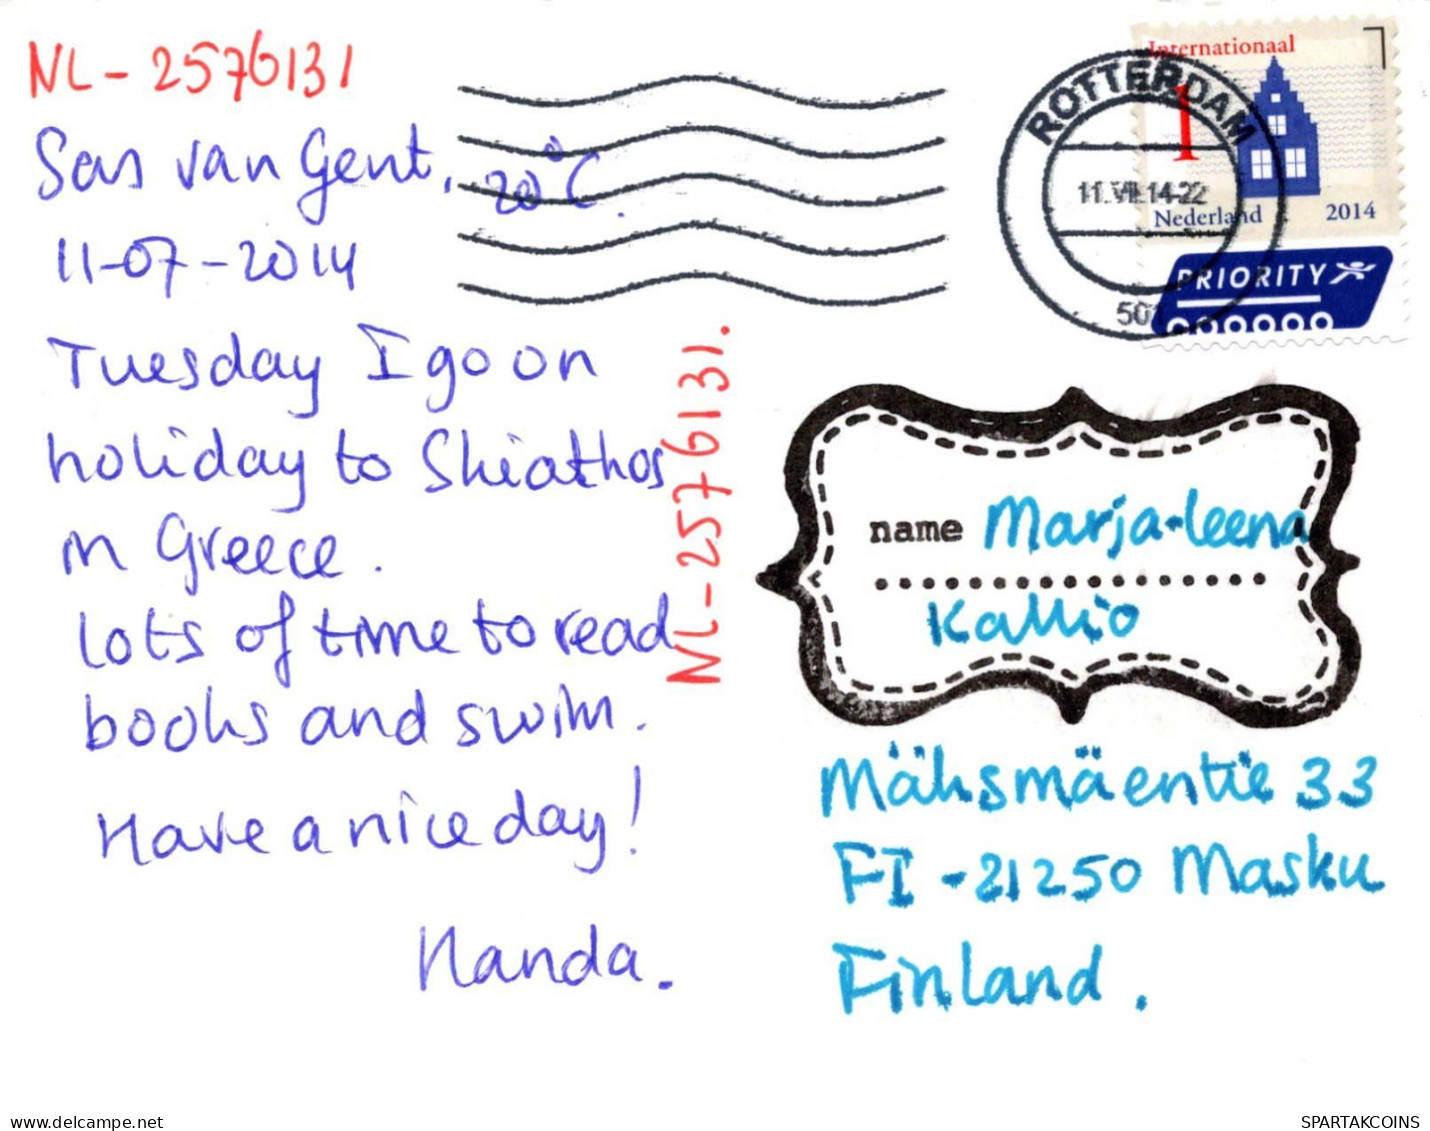 NL-2576131
Sas van Gent, 20°C.
11-07-2014
Tuesday I go on
holiday to Skiathos
in Greece.
Lots of time to read
books and swim.
Have a nice day!
Nanda.
NL-2576131.
ROTTERDAM
11.VII.14-22
Internationaal
1
Nederland 2014
PRIORITY
name Marja-leena
Kallio
Mäksmäentie 33
FI-21250 Masku
Finland.
SPARTAKCOINS